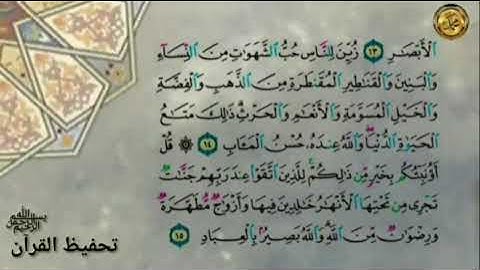 ٱلْأَبْصَٰرِ ١٣ زُيِّنَ لِلنَّاسِ حُبُّ ٱلشَّهَوَٰتِ مِنَ ٱلنِّسَآءِ
وَٱلْبَنِينَ وَٱلْقَنَٰطِيرِ ٱلْمُقَنطَرَةِ مِنَ ٱلذَّهَبِ وَٱلْفِضَّةِ
وَٱلْخَيْلِ ٱلْمُسَوَّمَةِ وَٱلْأَنْعَٰمِ وَٱلْحَرْثِ ذَٰلِكَ مَتَٰعُ
ٱلْحَيَوٰةِ ٱلدُّنْيَا وَٱللَّهُ عِندَهُۥ حُسْنُ ٱلْمَـَٔابِ ١٤ ۞ قُلْ
أَؤُنَبِّئُكُم بِخَيْرٍ مِّن ذَٰلِكُمْ لِلَّذِينَ ٱتَّقَوْا۟ عِندَ رَبِّهِمْ جَنَّٰتٌ
تَجْرِى مِن تَحْتِهَا ٱلْأَنْهَٰرُ خَٰلِدِينَ فِيهَا وَأَزْوَٰجٌ مُّطَهَّرَةٌ
وَرِضْوَٰنٌ مِّنَ ٱللَّهِ وَٱللَّهُ بَصِيرٌۢ بِٱلْعِبَادِ ١٥
بسم الله الرحمن الرحيم
تحفيظ القرآن